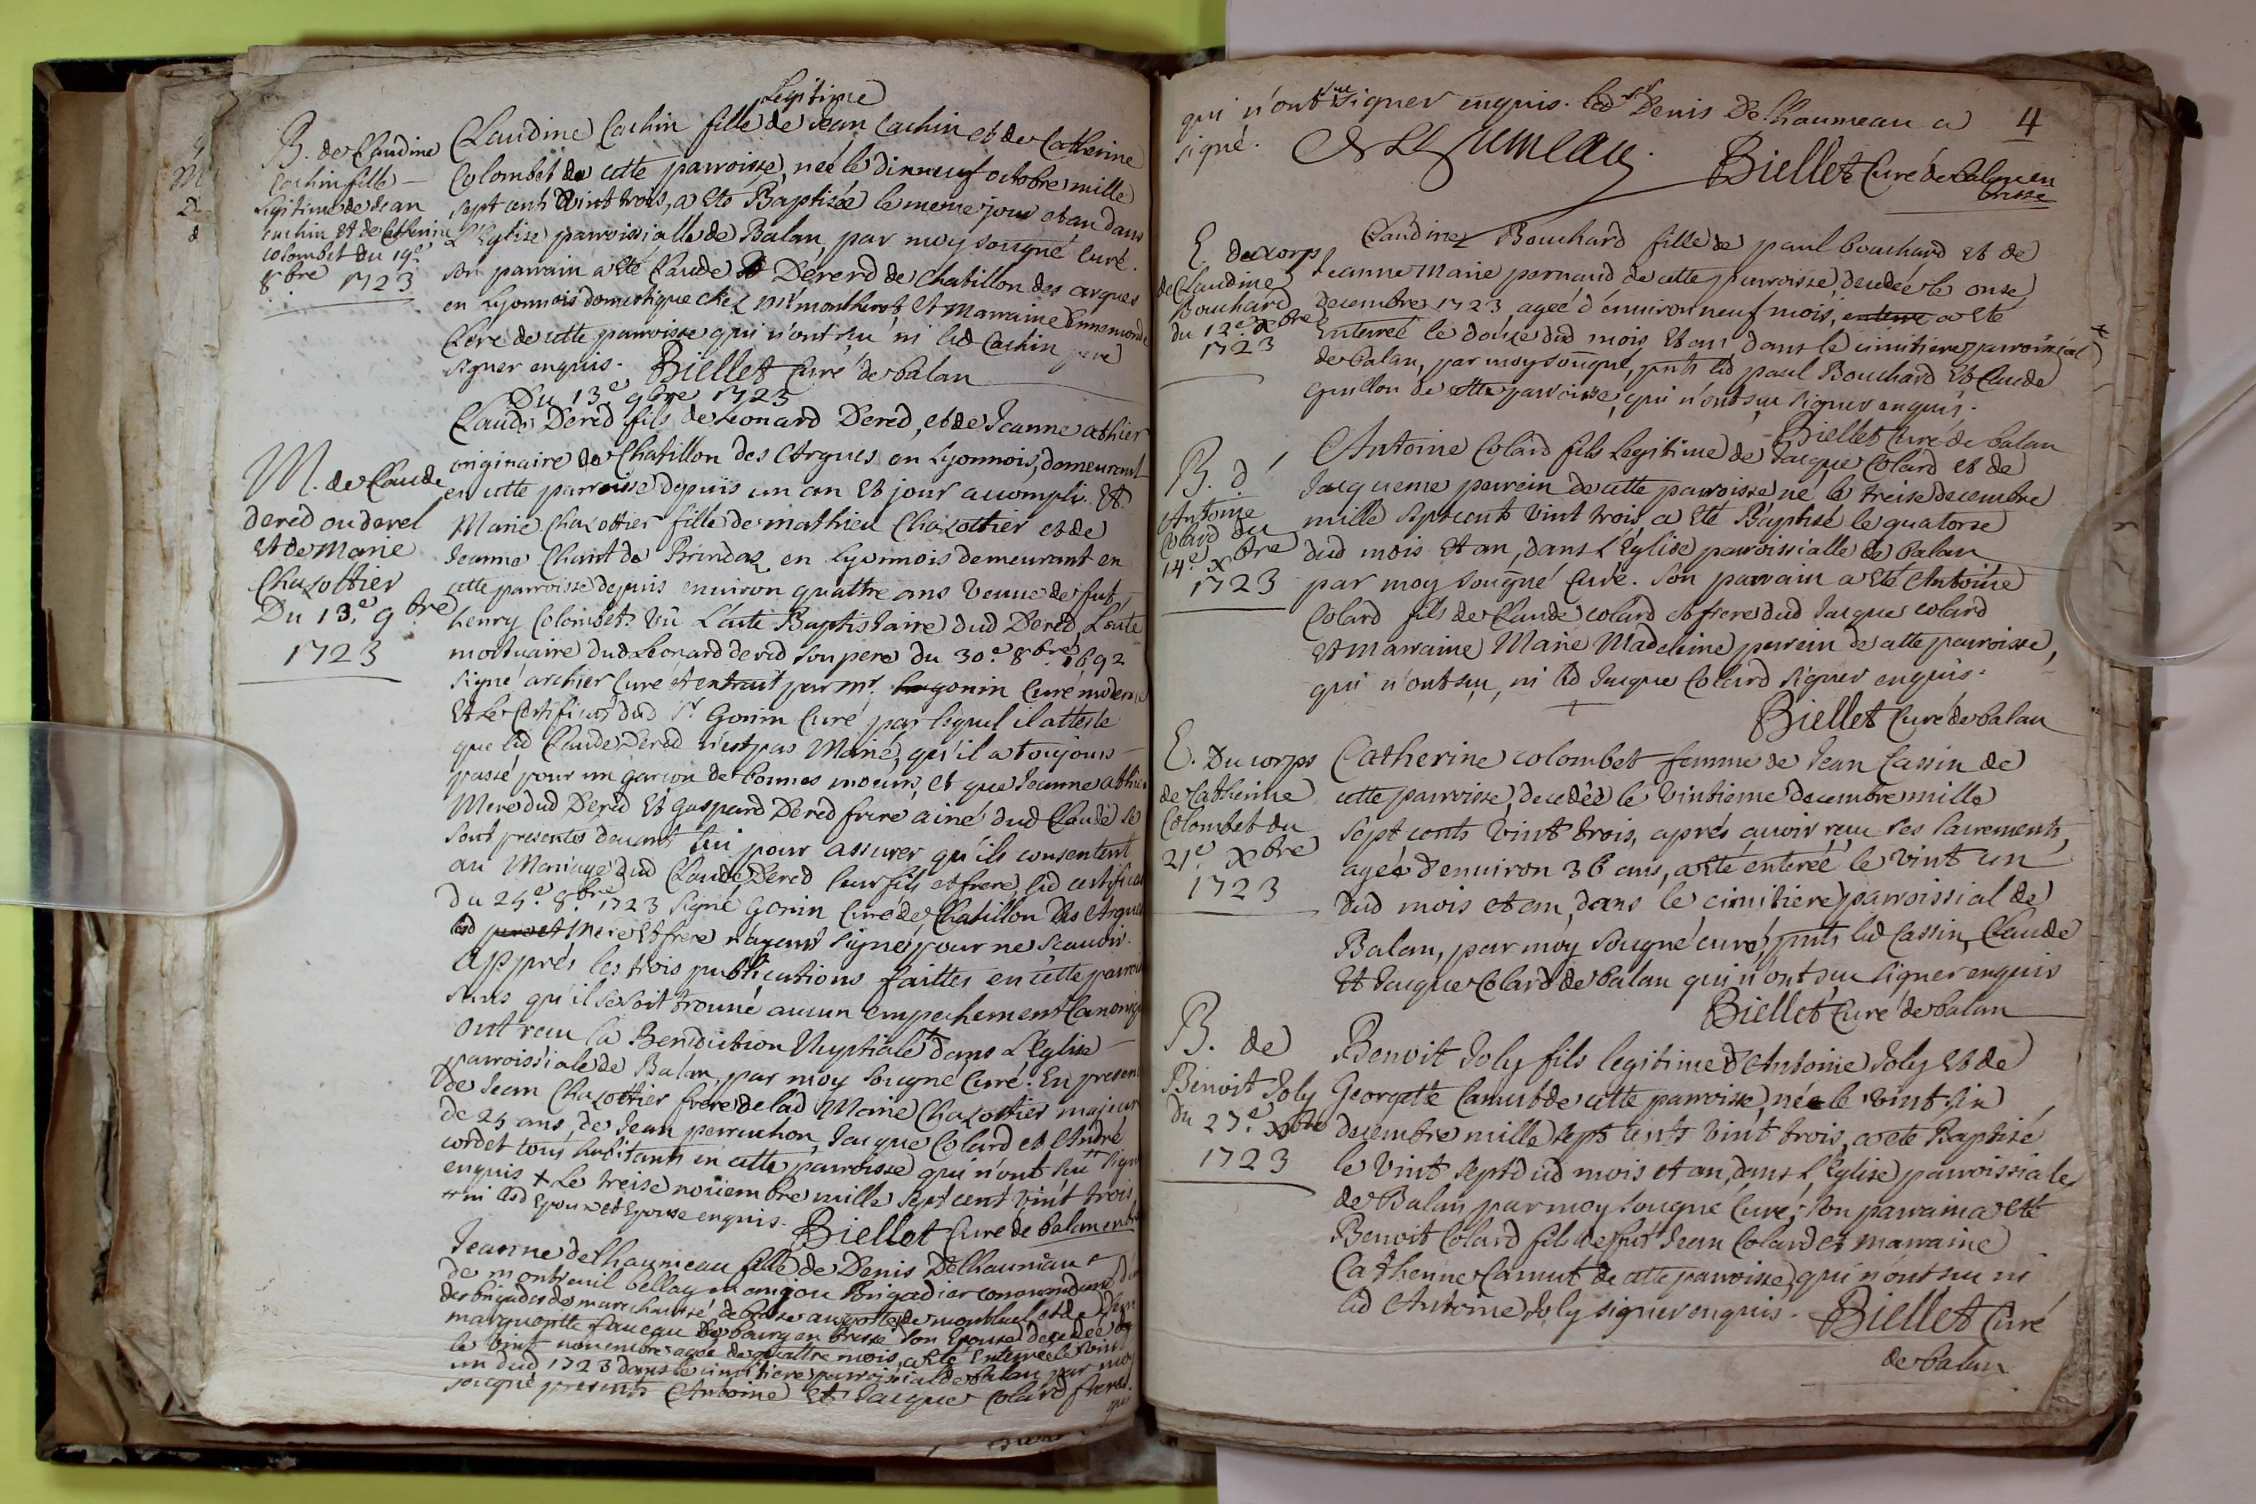 B. de Claudine
Cachin fille
legitime de Jean
Cachin et de Catherine
colombet du 19e
8bre 1723
Legitime
Claudine Cachin fille de Jean Cachin et de Catherine
Colombet de cette parroisse, neé le dixneuf octobre mille
sept cents vint trois, a eté Baptizeé le meme jour et an dans
L'Eglise parroissialle de Balan, par moy sougné curé.
son parrain a eté Claude Dererd de Chatillon des arques
en Lyonnois domestique chez Mr montherot, Et Marraine Ennemonde
Clere de cette parroisse qui n'ont sçu ni led Cachin pere
signer enquis. Biellet Curé de balan
M. de Claude
dered ou derel
Et de Marie
Chazottier
Du 13.e 9bre
1723
Du 13e 9bre 1723
Claude Dered fils de Leonard Dered, et de Jeanne athier
originaire de Chatillon des Arques en Lyonnois, demeurant
en cette parroisse depuis un an Et jour accompli. Et
Marie Chazottier fille de mathieu Chazottier et de
Jeanne Chant de Brindas en Lyonnois demeurant en
cette parroisse depuis environ quattre ans veuve de fut
henry Colombet. vû L'acte Baptistaire dud Dered, L'acte
mortuaire dud Leonard dered son pere du 30.e 8bre 1692
signé archier Curé et extrait par mr. gonin Curé moderne
Et le Certificat dud Sr Gonin Curé par lequel il atteste
que led Claude Dered n'est pas Marié, qu'il a toujours
passé pour un garçon de bonnes mœurs, et que Jeanne athier
Mere dud Dered Et gaspard Dered frere ainé dud Claude se
sont presentes devant lui pour assurer qu'ils consentent
au Mariage dud Claude Dered leur fils et frere, led certificat
du 25.e 8bre 1723 signé Gonin Curé de Chatillon des Arques
led pere et Mere et frere n'ayant signé pour ne scavoir.
Apprés les trois publications faittes en cette parroisse
sans qu'il se soit trouvé aucun empechement Canonique
ont reçu la Benediction Nuptiale dans L'Eglise
parroissiale de Balan, par moy sougné Curé. En presence
de Jean Chazottier frere de lad Marie Chazottier majeur
de 25 ans, de Jean perruchon, Jacque Colard et André
cordet tous habitants en cette parroisse qui n'ont sçu signer
enquis + Le treise novembre mille sept cent vint trois,
+ ni led Epoux et Epouse enquis. Biellet Curé de balan en
Jeanne delhaumeau fille de Denis Delhaumeau
de montreuil bellay en anjou Brigadier commandant
des brigades de marechaussé de bresse au poste de montluel et de
marguerite faucau de bourg en bresse son Epouse decedeé
le vint novembre ageé de quattre mois, a eté Enterreé le vint
un dud 1723 dans le cimitiere parroissial de balan par moy
sougné presents Antoine Et Jacque Colard freres
qui
qui n'ont sçu signer enquis. led sr Denis Delhaumeau a
signé.
4
Delhaumeau.
Biellet Curé de balan en
bresse
E. du corps
de Claudine
Bouchard
du 12.e xbre
1723
Claudine Bouchard fille de paul bouchard et de
Jeanne Marie pernaud de cette parroisse, decedeé le onse
decembre 1723 ageé d'environ neuf mois, enterre a eté
Enterreé le douse dud mois Et an dans le cimitiere parroissial
de balan, par moy sougné, pnts led paul Bouchard et Claude
Guillon de cette parroisse, qui n'ont sçu signer enquis.
Biellet Curé de balan
B. d'
Antoine
Colard du
14.e xbre
1723
Antoine Colard fils Legitime de Jacque Colard et de
Jacqueme perrein de cette parroisse né le treise decembre
mille sept cents vint trois, a eté Baptisé le quatorse
dud mois Et an, dans L'Eglise parroissialle de balan
par moy sougné Curé. Son parrain a eté Antoine
Colard fils de Claude colard et frere dud Jacque colard
Et marraine Marie Madeleine perrein de cette parroisse,
qui n'ont sçu, ni led Jacque Colard signer enquis.
Biellet Curé de balan
E. Du corps
de Catherine
Colombet du
21e xbre
1723
Catherine colombet femme de Jean Cassin de
cette parroisse, decedée le vintieme decembre mille
sept cents vint trois, aprés avoir reçu ses sacrements,
ageé d'environ 36 ans, a eté enterreé le vint un
dud mois et an, dans le cimitiere parroissial de
Balan, par moy sougné curé, pnts led Cassin, Claude
Et Jacque Colard de balan qui n'ont sçu signer enquis
Biellet Curé de balan
B. de
Benoit Joly
Du 27.e xbre
1723
Benoit Joly fils legitime d'Antoine Joly et de
Georgette Camut de cette parroisse, né le vint six
decembre mille sept cents vint trois, a eté Baptisé
le vint sept dud mois et an, dans L'Eglise parroissiale
de Balan par moy sougné Curé; son parrain a eté
Benoit Colard fils de fut Jean Colard et marraine
Catherine Camut de cette parroisse, qui n'ont sçu ni
led Antoine Joly signer enquis. Biellet Curé
de balan